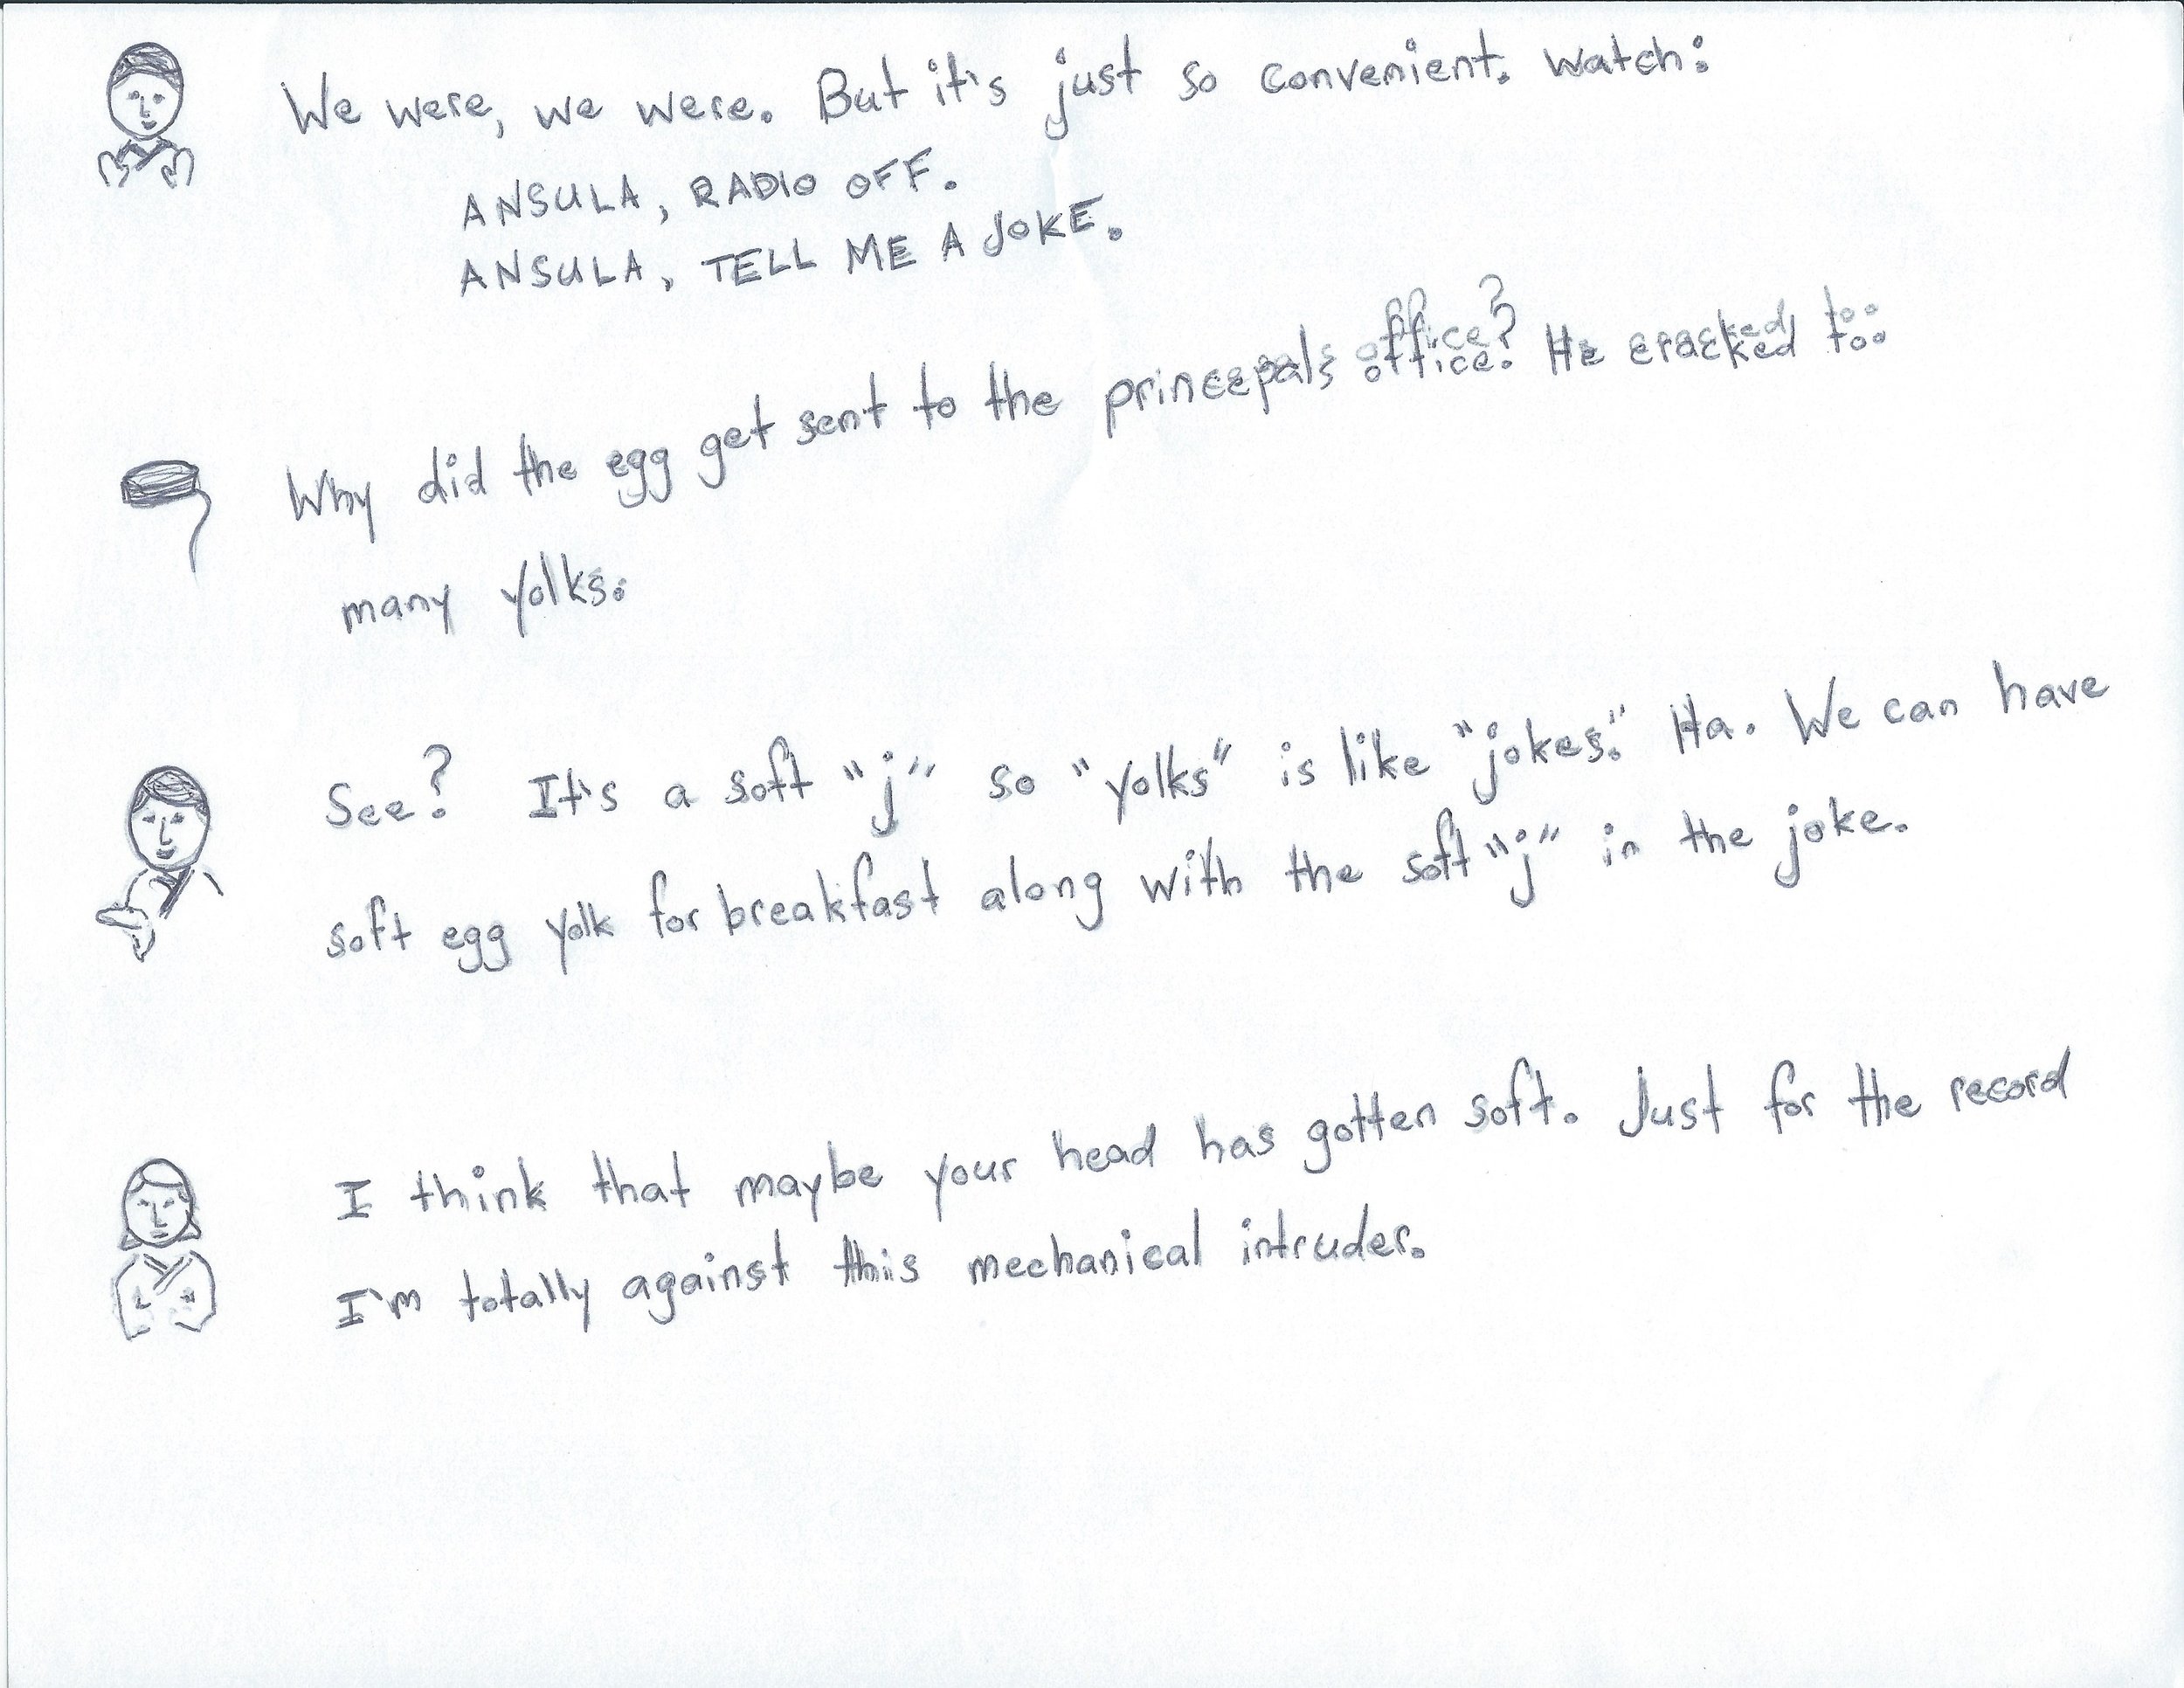 We were, we were. But it's just so convenient. Watch:
ANSULA, RADIO OFF.
ANSULA, TELL ME A JOKE.
Why did the egg get sent to the princepals office? He cracked too
many yolks.
See? It's a soft "j" so "yolks" is like "jokes." Ha. We can have
soft egg yolk for breakfast along with the soft "j" in the joke.
I think that maybe your head has gotten soft. Just for the record
I'm totally against this mechanical intruder.